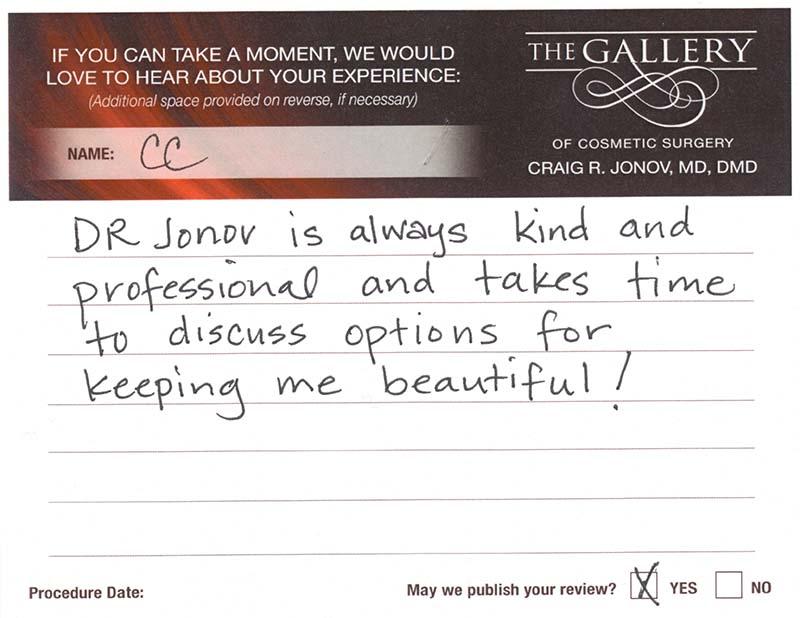 IF YOU CAN TAKE A MOMENT, WE WOULD
LOVE TO HEAR ABOUT YOUR EXPERIENCE:
(Additional space provided on reverse, if necessary)
NAME: CC
THE GALLERY
OF COSMETIC SURGERY
CRAIG R. JONOV, MD, DMD
DR Jonov is always kind and
professional and takes time
to discuss options for
keeping me beautiful!
Procedure Date:
May we publish your review? X YES NO